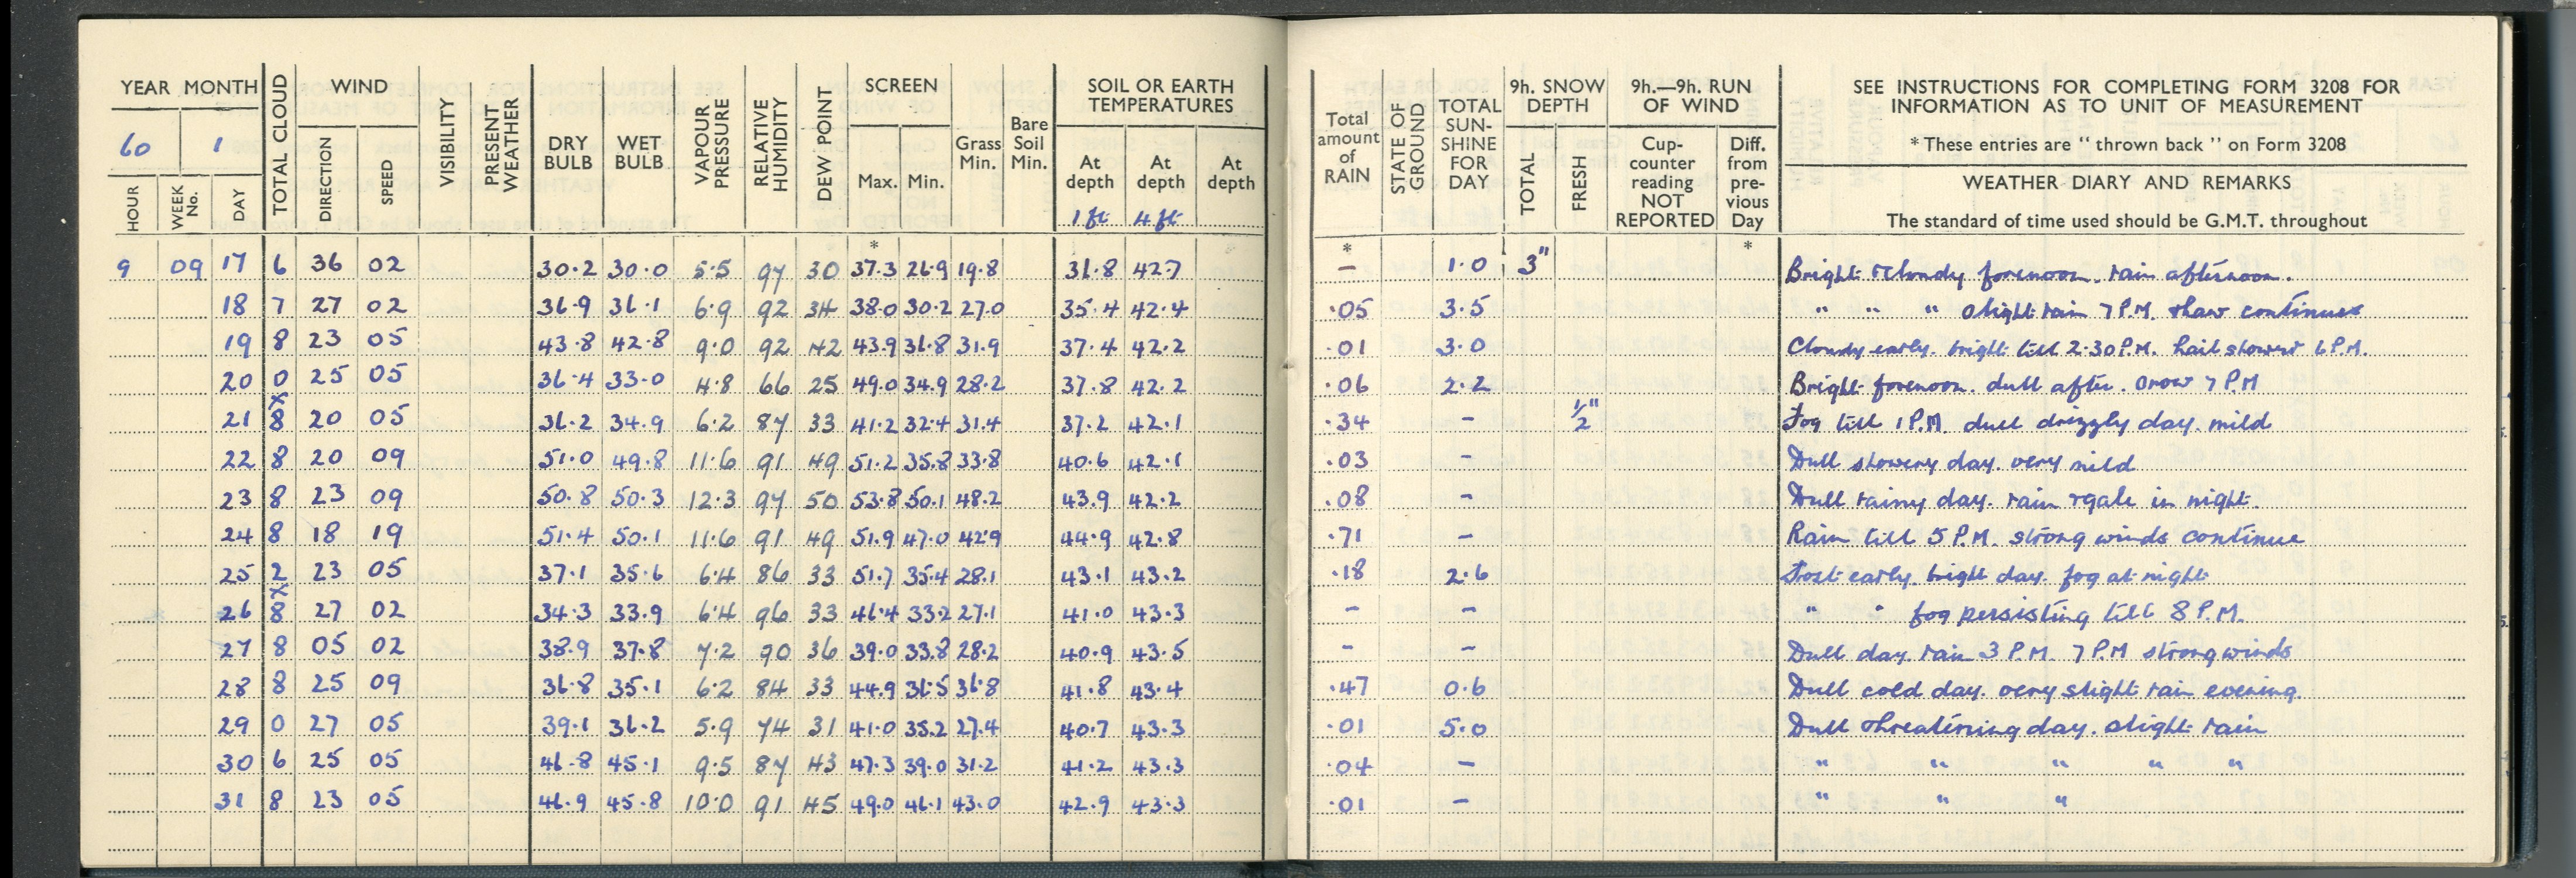 YEAR MONTH
60 1
HOUR WEEK No. DAY TOTAL CLOUD WIND DIRECTION SPEED VISIBILITY PRESENT WEATHER DRY BULB WET BULB VAPOUR PRESSURE RELATIVE HUMIDITY DEW POINT SCREEN Max. Min. Grass Min. Bare Soil Min. SOIL OR EARTH TEMPERATURES At depth 1 ft At depth 4 ft At depth
Total amount of RAIN STATE OF GROUND TOTAL SUN-SHINE FOR DAY 9h. SNOW DEPTH TOTAL FRESH 9h.—9h. RUN OF WIND Cup-counter reading NOT REPORTED Diff. from pre-vious Day
SEE INSTRUCTIONS FOR COMPLETING FORM 3208 FOR
INFORMATION AS TO UNIT OF MEASUREMENT
* These entries are "thrown back" on Form 3208
WEATHER DIARY AND REMARKS
The standard of time used should be G.M.T. throughout
* * *
9 09 17 6 36 02 30.2 30.0 5.5 97 30 37.3 26.9 19.8 31.8 42.7 – 1.0 3" Bright & cloudy forenoon. rain afternoon.
18 7 27 02 36.9 36.1 6.9 92 34 38.0 30.2 27.0 35.4 42.4 .05 3.5 " " " slight rain 7 P.M. thaw continues
19 8 23 05 43.8 42.8 9.0 92 42 43.9 36.8 31.9 37.4 42.2 .01 3.0 Cloudy early. bright till 2.30 P.M. hail showers 6 P.M.
20 0 25 05 36.4 33.0 4.8 66 25 49.0 34.9 28.2 37.8 42.2 .06 2.2 Bright forenoon. dull after. snow 7 P.M
21 x 8 20 05 36.2 34.9 6.2 87 33 41.2 32.4 31.4 37.2 42.1 .34 – ½" Fog till 1 P.M. dull drizzly day. mild
22 8 20 09 51.0 49.8 11.6 91 49 51.2 35.8 33.8 40.6 42.1 .03 – Dull showery day. very mild
23 8 23 09 50.8 50.3 12.3 97 50 53.8 50.1 48.2 43.9 42.2 .08 – Dull rainy day. rain & gale in night.
24 8 18 19 51.4 50.1 11.6 91 49 51.9 47.0 42.9 44.9 42.8 .71 – Rain till 5 P.M. strong winds continue
25 2 23 05 37.1 35.6 6.4 86 33 51.7 35.4 28.1 43.1 43.2 .18 2.6 Frost early. bright day. fog at night
26 x 8 27 02 34.3 33.9 6.4 96 33 46.4 33.2 27.1 41.0 43.3 – – " " fog persisting till 8 P.M.
27 8 05 02 38.9 37.8 7.2 90 36 39.0 33.8 28.2 40.9 43.5 – – Dull day. rain 3 P.M. 7 P.M strong winds
28 8 25 09 36.8 35.1 6.2 84 33 44.9 36.5 36.8 41.8 43.4 .47 0.6 Dull cold day. very slight rain evening.
29 0 27 05 39.1 36.2 5.9 74 31 41.0 35.2 27.4 40.7 43.3 .01 5.0 Dull threatening day. slight rain
30 6 25 05 46.8 45.1 9.5 87 43 47.3 39.0 31.2 41.2 43.3 .04 – " " " " "
31 8 23 05 46.9 45.8 10.0 91 45 49.0 46.1 43.0 42.9 43.3 .01 – " " "